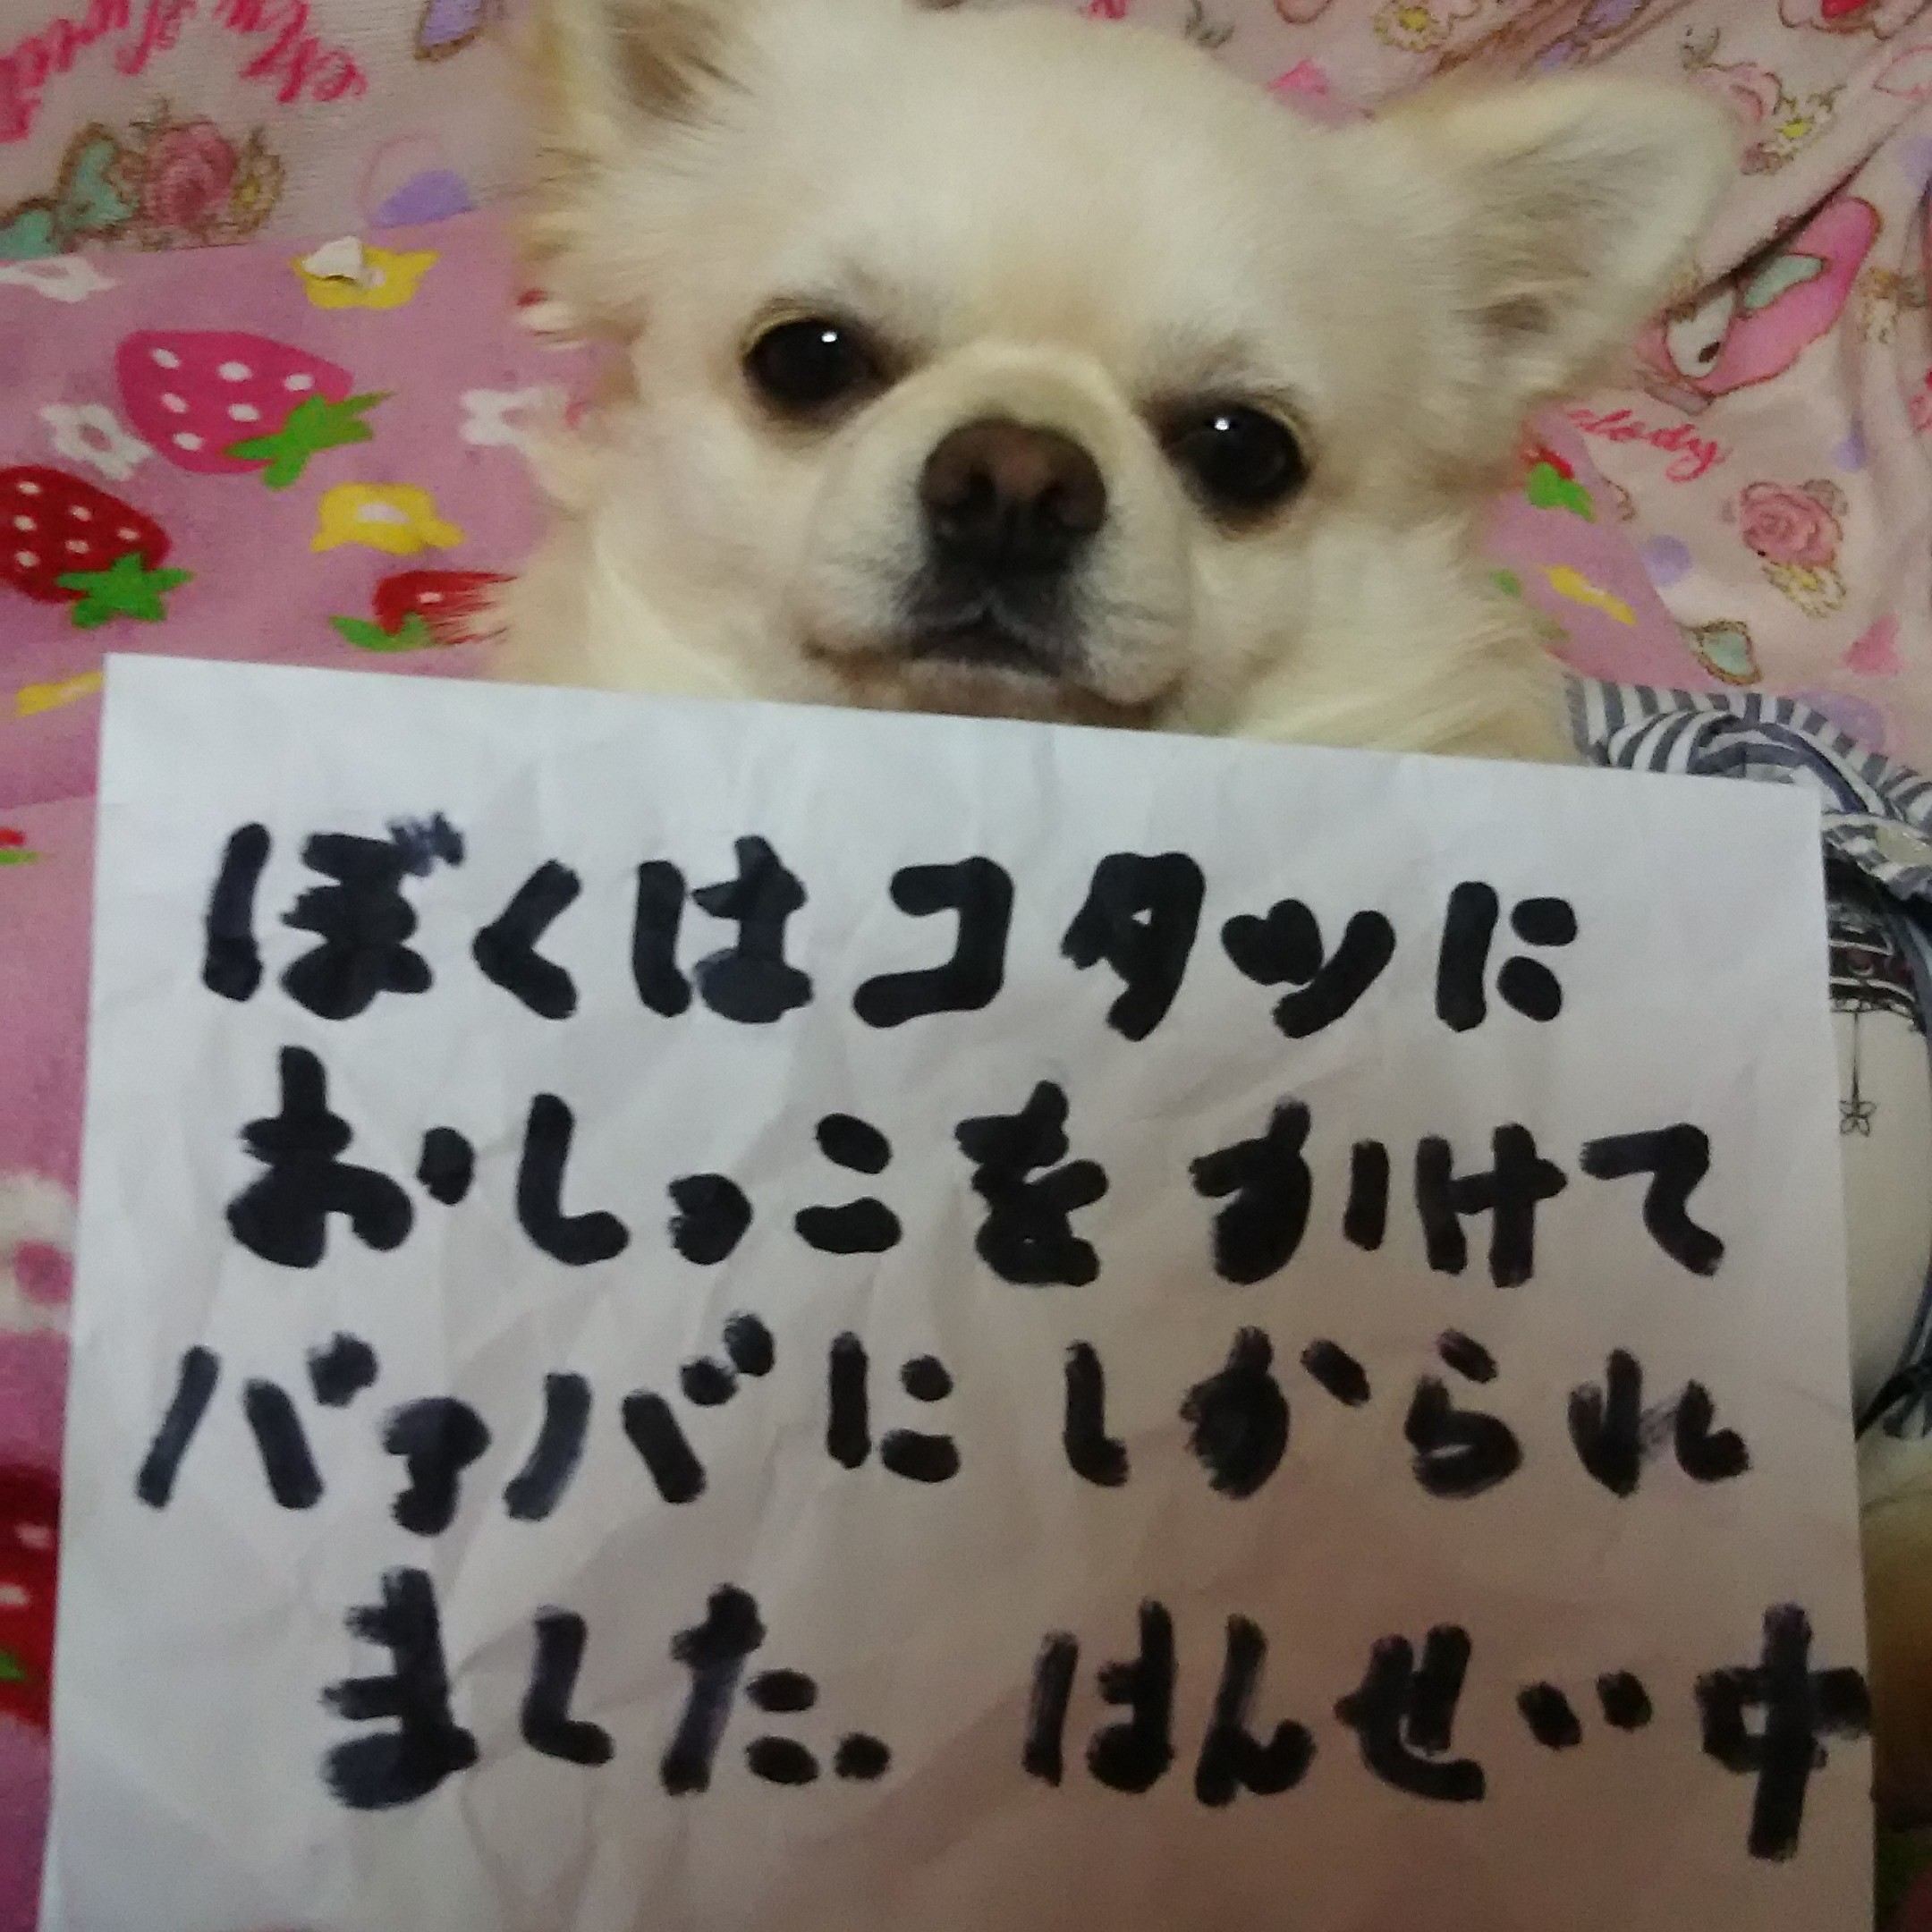 ぼくはコタツに
おしっこをかけて
バァバにしかられ
ました。はんせい中
lody